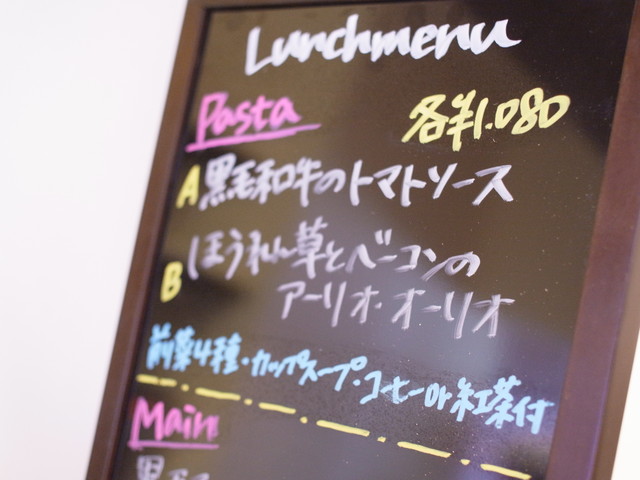 Lunchmenu
Pasta 各¥1.080
A 黒毛和牛のトマトソース
B ほうれん草とベーコンの
アーリオ・オーリオ
前菜4種・カップスープ・コーヒーor紅茶付
Main